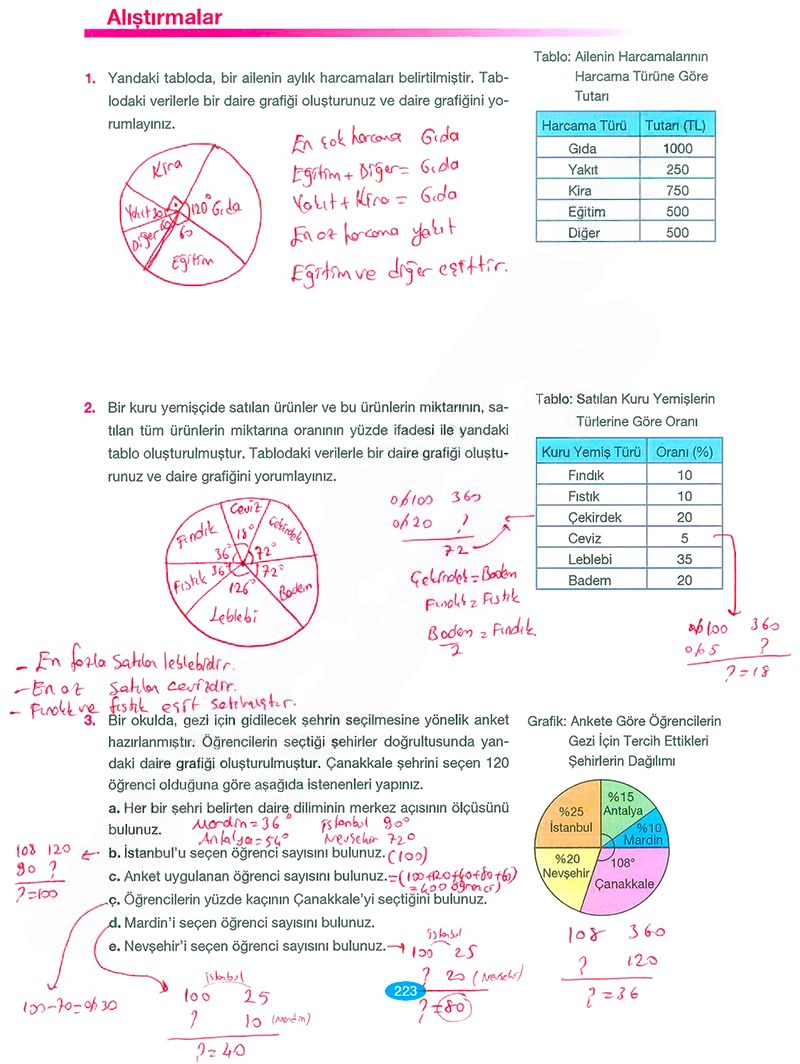 Alıştırmalar
1. Yandaki tabloda, bir ailenin aylık harcamaları belirtilmiştir. Tab-
lodaki verilerle bir daire grafiği oluşturunuz ve daire grafiğini yo-
rumlayınız.
Tablo: Ailenin Harcamalarının
Harcama Türüne Göre
Tutarı
Harcama Türü Tutarı (TL)
Gıda 1000
Yakıt 250
Kira 750
Eğitim 500
Diğer 500
Kira
Yakıt 30
120° Gıda
Diğer 60
60
Eğitim
En çok harcama Gıda
Eğitim + Diğer = Gıda
Yakıt + Kira = Gıda
En az harcama yakıt
Eğitim ve diğer eşittir.
2. Bir kuru yemişçide satılan ürünler ve bu ürünlerin miktarının, sa-
tılan tüm ürünlerin miktarına oranının yüzde ifadesi ile yandaki
tablo oluşturulmuştur. Tablodaki verilerle bir daire grafiği oluştu-
runuz ve daire grafiğini yorumlayınız.
Tablo: Satılan Kuru Yemişlerin
Türlerine Göre Oranı
Kuru Yemiş Türü Oranı (%)
Fındık 10
Fıstık 10
Çekirdek 20
Ceviz 5
Leblebi 35
Badem 20
Ceviz
Fındık 18° Çekirdek
36° 72°
Fıstık 36° 72°
126° Badem
Leblebi
%100 360
%20 ?
72
Çekirdek = Badem
Fındık = Fıstık
Badem/2 = Fındık
%100 360
%5 ?
? = 18
- En fazla satılan leblebidir.
- En az satılan cevizdir.
- Fındık ve fıstık eşit satılmıştır.
3. Bir okulda, gezi için gidilecek şehrin seçilmesine yönelik anket
hazırlanmıştır. Öğrencilerin seçtiği şehirler doğrultusunda yan-
daki daire grafiği oluşturulmuştur. Çanakkale şehrini seçen 120
öğrenci olduğuna göre aşağıda istenenleri yapınız.
a. Her bir şehri belirten daire diliminin merkez açısının ölçüsünü
bulunuz.
Mardin = 36° İstanbul 90°
Antalya = 54° Nevşehir 72°
b. İstanbul'u seçen öğrenci sayısını bulunuz. (100)
c. Anket uygulanan öğrenci sayısını bulunuz. = (100+120+40+80+60)
= 400 öğrenci)
ç. Öğrencilerin yüzde kaçının Çanakkale'yi seçtiğini bulunuz.
d. Mardin'i seçen öğrenci sayısını bulunuz.
e. Nevşehir'i seçen öğrenci sayısını bulunuz.
Grafik: Ankete Göre Öğrencilerin
Gezi İçin Tercih Ettikleri
Şehirlerin Dağılımı
%15
Antalya
%25
İstanbul
%10
Mardin
%20
Nevşehir
108°
Çanakkale
108 120
90 ?
? = 100
100-70 = %30
istanbul
100 25
? 10 (Mardin)
? = 40
istanbul
100 25
? 20 (Nevşehir)
? = 80
108 360
? 120
? = 36
223